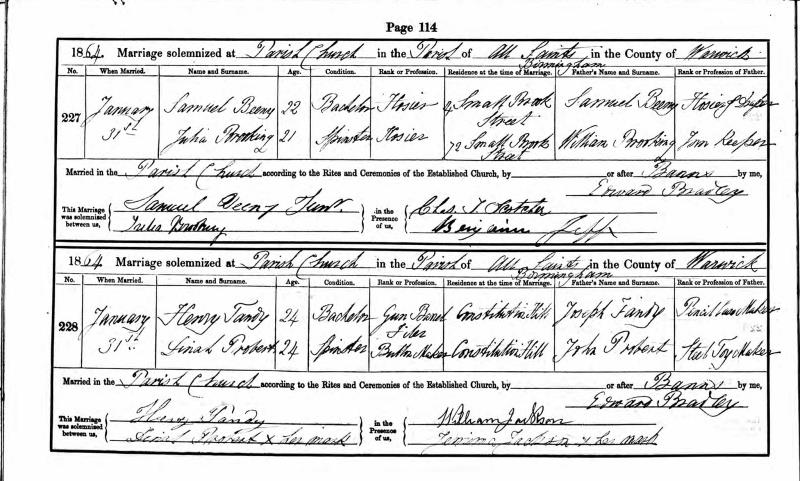 Page 114
1864. Marriage solemnized at Parish Church in the Parish of All Saints Birmingham in the County of Warwick
No. When Married. Name and Surname. Age. Condition. Rank or Profession. Residence at the time of Marriage. Father's Name and Surname. Rank or Profession of Father.
227 January 31st Samuel Beeny 22 Bachelor Hosier Small Brook Street Samuel Beeny Hosier &
Julia Brooking 21 Spinster Hosier 72 Small Brook Street William Brooking Keeper
Married in the Parish Church according to the Rites and Ceremonies of the Established Church, by or after Banns by me,
Edward Bradley
This Marriage was solemnized between us, Samuel Beeny Junr. in the Presence of us, Chas. J.
Julia Brooking Benjamin Jeffs
1864. Marriage solemnized at Parish Church in the Parish of All Saints Birmingham in the County of Warwick
No. When Married. Name and Surname. Age. Condition. Rank or Profession. Residence at the time of Marriage. Father's Name and Surname. Rank or Profession of Father.
228 January 31st Henry Tandy 24 Bachelor Gun Barrel Filer Constitution Hill Joseph Tandy Pencil Case Maker
Dinah Probert 24 Spinster Button Maker Constitution Hill John Probert Steel Toy Maker
Married in the Parish Church according to the Rites and Ceremonies of the Established Church, by or after Banns by me,
Edward Bradley
This Marriage was solemnized between us, Henry Tandy in the Presence of us, William Jackson
Probert x her mark Jackson x her mark